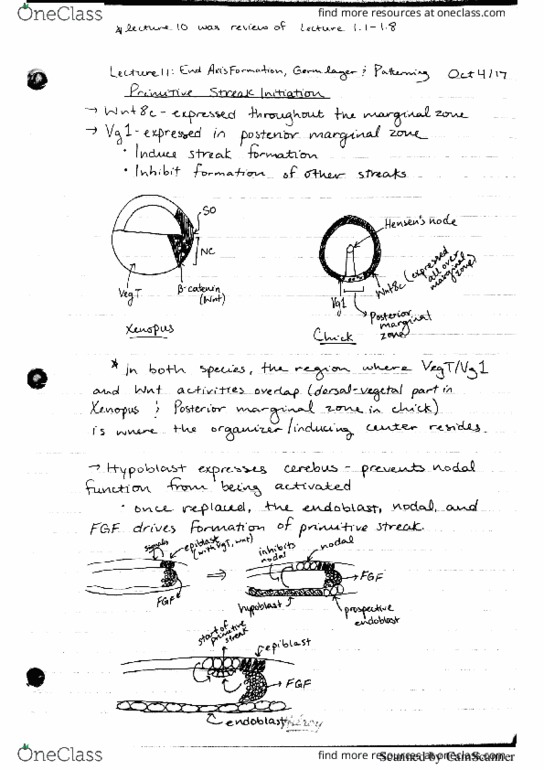 OneClass
find more resources at oneclass.com
* lecture 10 was review of lecture 1.1-1.8
Lecture 11: End Axis Formation, Germ layer & Patterning Oct 4/17
Primitive Streak Initiation
→ Wnt8c - expressed throughout the marginal zone
→ Vg1 - expressed in posterior marginal zone
• Induce streak formation
• Inhibit formation of other streaks
SO
NC
VegT
β-catenin
(Wnt)
Xenopus
Hensen's node
Wnt8c (expressed
all over
marginal
zone)
Vg1
Posterior
marginal
zone
Chick
* in both species, the region where VegT/Vg1
and Wnt activities overlap (dorsal-vegetal part in
Xenopus & Posterior marginal zone in chick)
is where the organizer/inducing center resides.
→ Hypoblast expresses cerebus - prevents nodal
function from being activated
• once replaced, the endoblast, nodal, and
FGF drives formation of primitive streak.
signals
epiblast
(with VgT, Wnt)
FGF
⇒
inhibits
nodal
nodal
FGF
hypoblast
prospective
endoblast
start of
primitive
streak
epiblast
FGF
endoblast
OneClass
find more resources at oneclass.com
Scanned by CamScanner